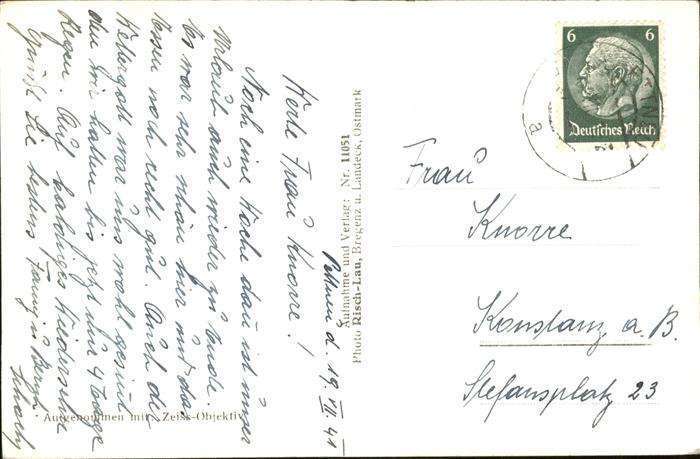 Pettneu d. 19. VII. 41
Werte Frau Knorre!
Noch eine Woche dan ist unser
Urlaub auch wieder zu Ende.
Es war sehr schön hier mit das
Essen noch recht gut. Auch der
Wettergott war uns wohl gesinnt
den wir hatten bis jetzt nur 4 Tage
Regen. Auf baldiges Wiedersehen
Grüßt Sie bestens Fanny u. Berth
Aufnahme und Verlag: Nr. 11051
Photo Risch-Lau, Bregenz u. Landeck, Ostmark
Aufgenommen mit Zeiss-Objektiv
6 6
Deutsches Reich
Frau
Knorre
Konstanz a. B.
Stefansplatz 23